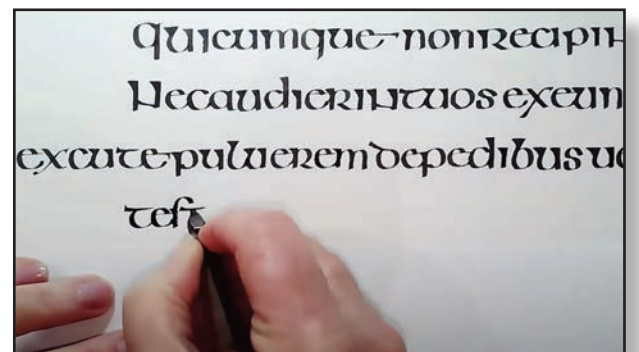 quicumque non recipin
Nec audierint uos exeun
excute puluerem de pedibus ue
test